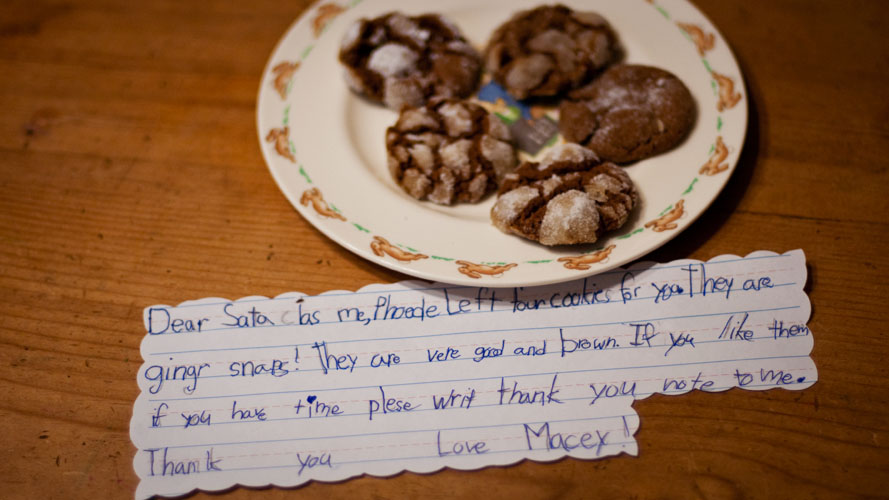 Dear Sata clas me, Phoebe Left four cookies for you. They are
gingr snaps! They are vere good and brown. If you like them
if you have time plese writ thank you note to me.
Thank you Love Macey!